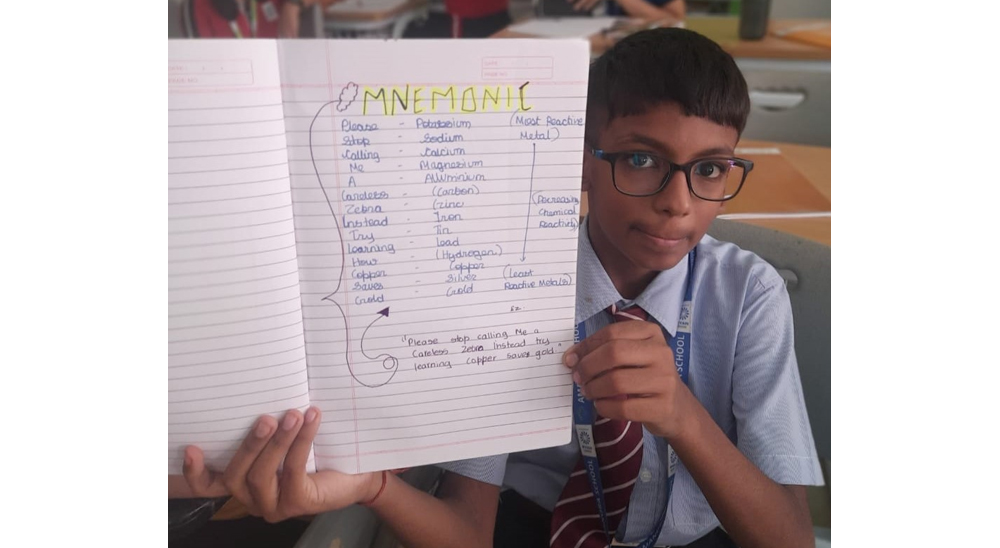 MNEMONIC
Please - Potatasium (Most Reactive
Stop - Sodium Metal)
Calling - Calcium
Me - Magnesium
A - Alluminium
Careless - (Carbon)
Zebra - Zinc (Decreasing
Instead - Iron Chemical
Try - Tin Reactively)
learning - lead
How - (Hydrogen)
Copper - Copper
Saves - Silver (Least
Gold - Gold Reactive Metals)
"Please stop calling Me a
Careless Zebra Instead try
learning copper saves gold"
SCHOOL